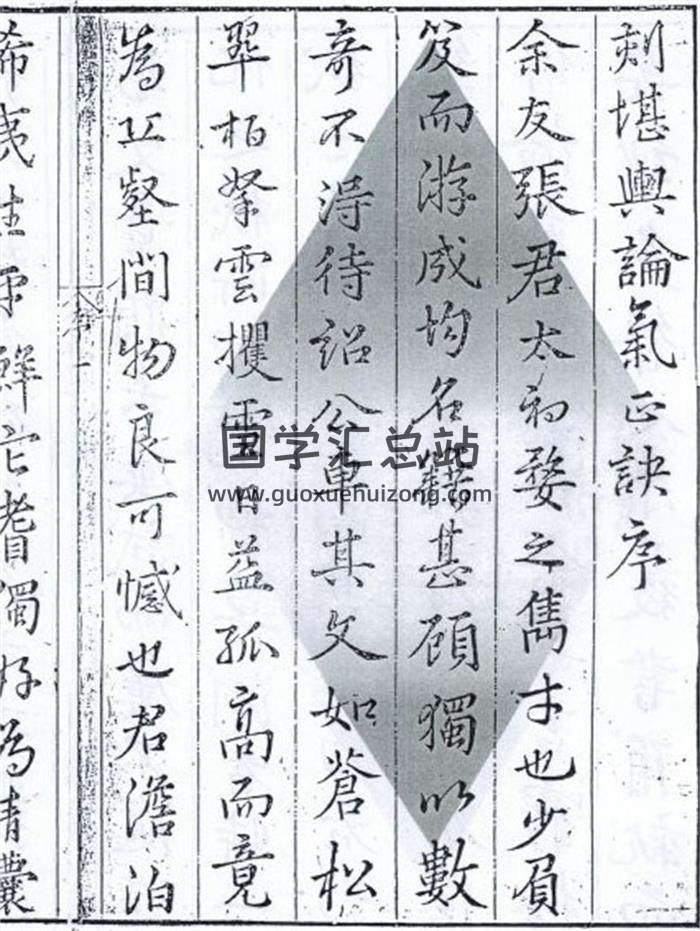 刻堪輿論氣正訣序
余友張君太初婺之雋才也少負
笈而游成均名籍甚顧獨以數
奇不淂待詔公車其文如蒼松
翠柏拏雲攫雪日益孤高而竟
為丘壑間物良可憾也君澹泊
希夷生平鮮它耆獨好為青囊
国学汇总站
www.guoxuehuizong.com